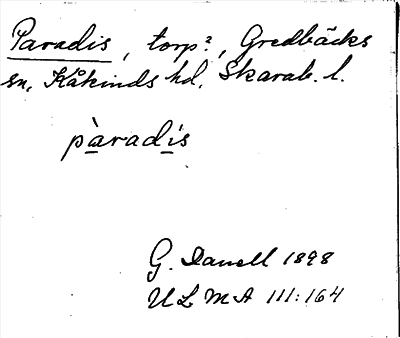 Paradis, torp?, Gredbäcks
sn, Kåkinds hd, Skarab. l.
pàradís
G. Danell 1898
ULMA 111:164